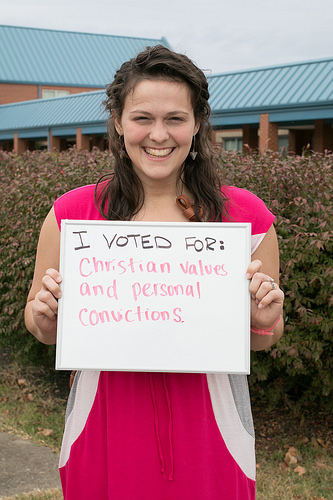 I VOTED FOR:
Christian values
and personal
convictions.